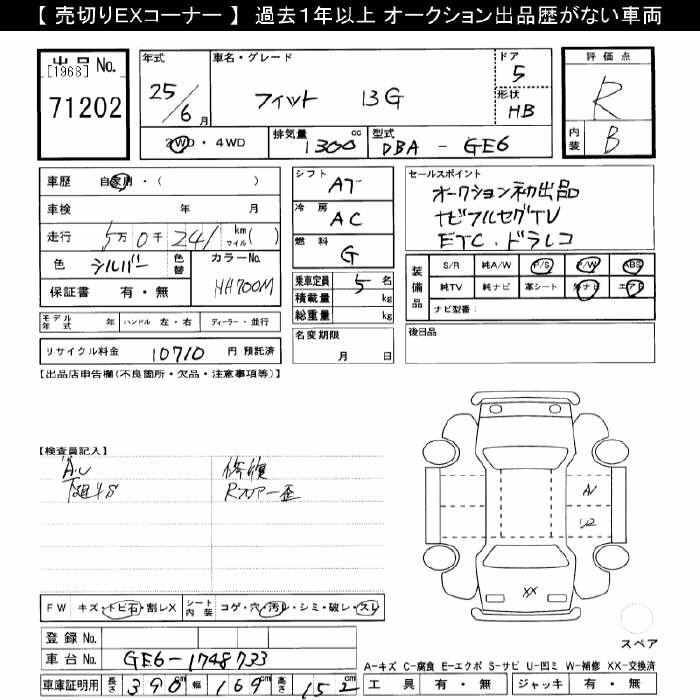 【 売切りEXコーナー 】 過去１年以上 オークション出品歴がない車両
出品 No.
[1968]
71202
年式
25/6 月
車名・グレード
フィット 13G
ドア
5
形状
HB
評価点
R
内装
B
2WD・4WD
排気量
1300 cc
型式
DBA - GE6
車歴 自家用・( )
車検 年 月
走行 5万0千241 km マイル ( )
色 シルバー 色替 カラーNo. NH700M
保証書 有・無
シフト
AT
冷房
AC
燃料
G
乗車定員 5 名
積載量 kg
総重量 kg
セールスポイント
オークション初出品
ナビフルセグTV
ETC. ドラレコ
装備品
S/R 純A/W P/S P/W ABS
純TV 純ナビ 革シート 外ナビ エアB
ナビ型番:
モデル年式 年 ハンドル 左・右 ディーラー・並行
リサイクル料金 10710 円 預託済
名変期限
月 日
後日品
【出品店申告欄(不良箇所・欠品・注意事項等)】
【検査員記入】
A.U
下廻キS
修復
Rフロアー歪
A1
U2
XX
FW キズ・トビ石・割レX シート内装 コゲ・穴・汚レ・シミ・破レ・スレ
登録 No.
車台 No. GE6-1748733
車庫証明用 長さ 390 cm 幅 169 cm 高さ 152 cm
スペア
A-キズ C-腐食 E-エクボ S-サビ U-凹ミ W-補修 XX-交換済
工具 有・無 ジャッキ 有・無